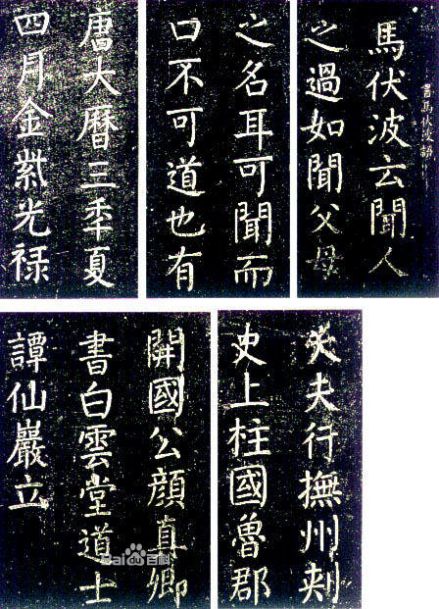 書馬伏波語
馬伏波云聞人
之過如聞父母
之名耳可聞而
口不可道也有
唐大曆三秊夏
四月金紫光禄
大夫行撫州刺
史上柱國魯郡
開國公顏真卿
書白雲堂道士
譚仙巖立
Bai百科